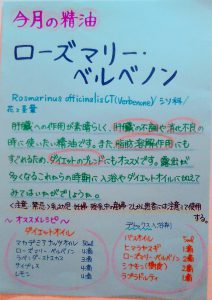 今月の精油
ローズマリー・
ベルベノン
Rosmarinus officinalis CT(Verbenone)/シソ科/
花と茎葉
肝臓への作用が素晴らしく、肝臓の不調や消化不良の
時に使いたい精油です。また脂肪溶解作用にも
すぐれるため、ダイエットのブレンドにもオススメです。露出が
多くなるこれからの時期に入浴やダイエットオイルに加えて
みてはいかがでしょうか。
〈注意:
妊婦・授乳中の産婦・
の患者には注意して使用
する。
～オススメレシピ～
ダイエットオイル
マカデミアナッツオイル 50ml
ローズマリー・ベルベノン
ラベンダーストエカス 3滴
サイプレス
レモン 4滴
デトックス入浴剤
バスオイル 5ml
ヒマラヤスギ 1滴
ローズマリー・ベルベノン 2滴
シナモン(樹皮) 1滴
ラブラドルティ 1滴